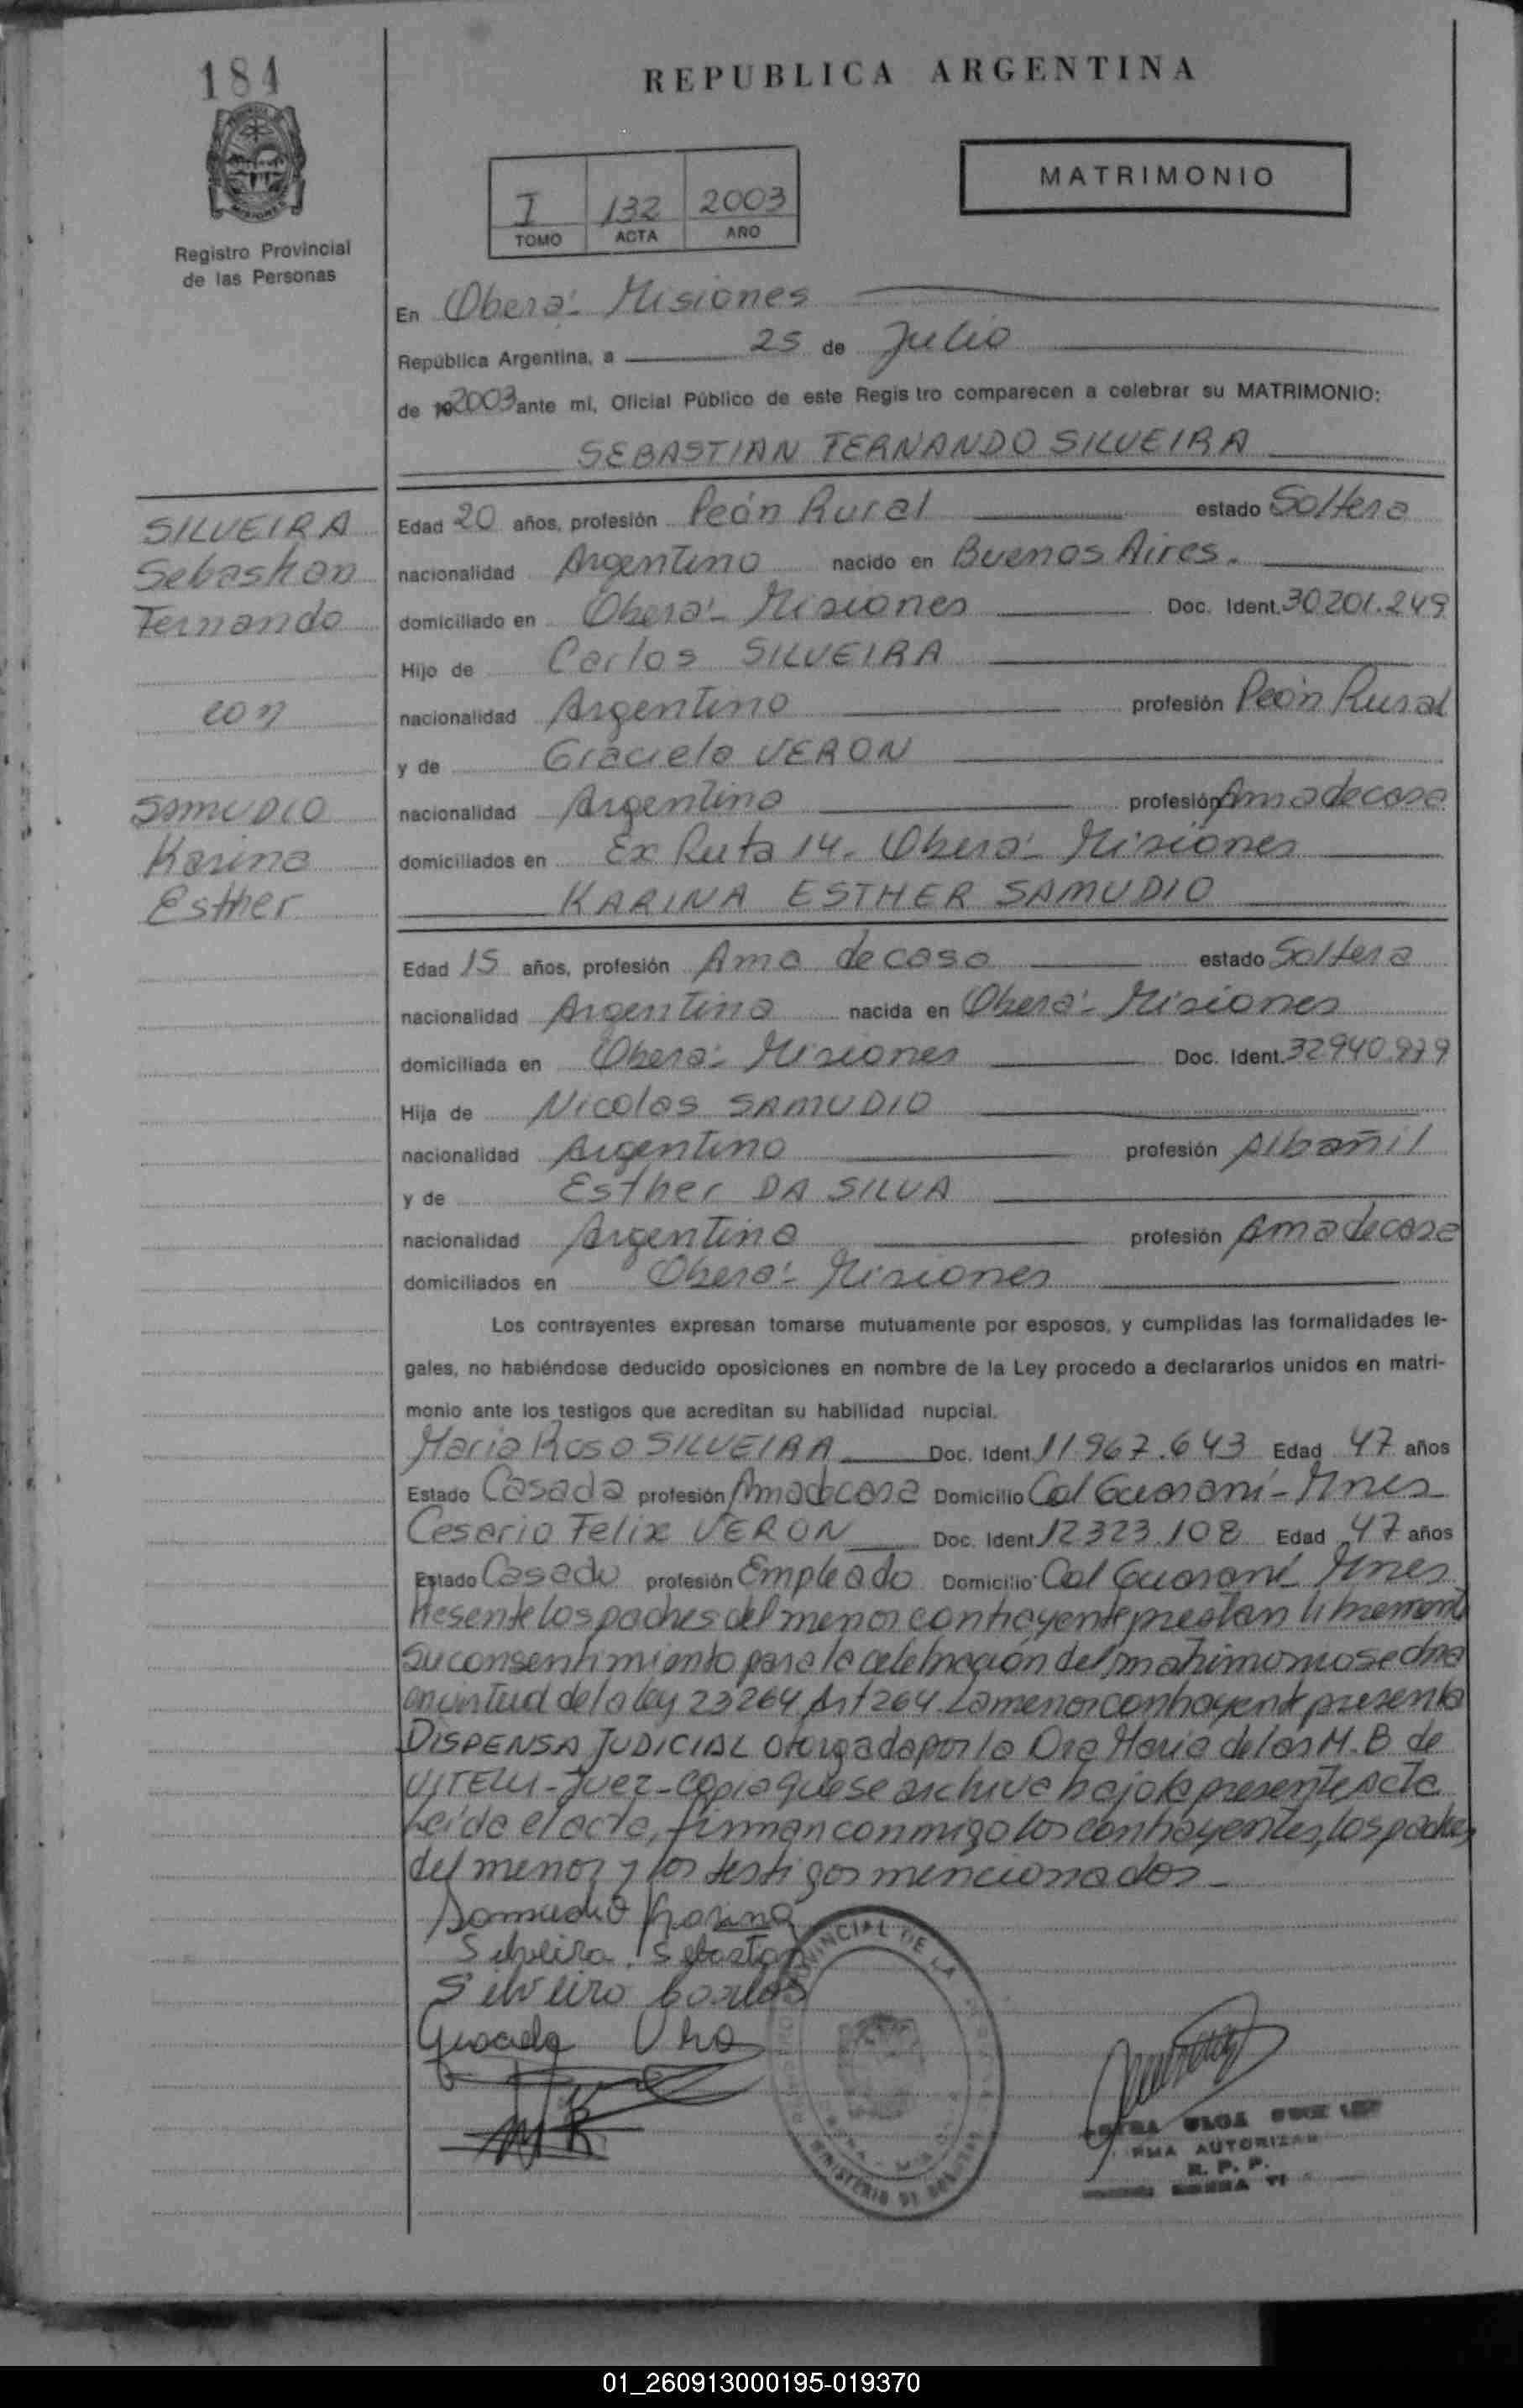 184
REPUBLICA ARGENTINA
MATRIMONIO
I 132 2003
TOMO ACTA AÑO
Registro Provincial
de las Personas
En Oberá - Misiones
República Argentina, a 25 de Julio
de 2003 ante mí, Oficial Público de este Regis tro comparecen a celebrar su MATRIMONIO:
SEBASTIAN FERNANDO SILVEIRA
SILVEIRA
Sebastian
Fernando
con
SAMUDIO
Karina
Esther
Edad 20 años, profesión Peón Rural estado Soltero
nacionalidad Argentino nacido en Buenos Aires.
domiciliado en Oberá - Misiones Doc. Ident. 30201.249
Hijo de Carlos SILVEIRA
nacionalidad Argentino profesión Peón Rural
y de Graciela VERON
nacionalidad Argentina profesión Ama de casa
domiciliados en Ex Ruta 14 - Oberá - Misiones
KARINA ESTHER SAMUDIO
Edad 15 años, profesión Ama de casa estado Soltera
nacionalidad Argentina nacida en Oberá - Misiones
domiciliada en Oberá - Misiones Doc. Ident. 32940.979
Hija de Nicolas SAMUDIO
nacionalidad Argentino profesión Albañil
y de Esther DA SILVA
nacionalidad Argentina profesión Ama de casa
domiciliados en Oberá - Misiones
Los contrayentes expresan tomarse mutuamente por esposos, y cumplidas las formalidades le-
gales, no habiéndose deducido oposiciones en nombre de la Ley procedo a declararlos unidos en matri-
monio ante los testigos que acreditan su habilidad nupcial.
Maria Rosa SILVEIRA Doc. Ident 11.967.643 Edad 47 años
Estado Casada profesión Ama de casa Domicilio Col Guaraní - Mnes
Cesario Felix VERON Doc. Ident 12323.108 Edad 47 años
Estado Casado profesión Empleado Domicilio Col Guaraní Mnes
Presente los padres del menor contrayente prestan libremente
su consentimiento para la celebración del matrimonio
en virtud de la ley 23264 Art 264. La menor contrayente presenta
DISPENSA JUDICIAL otorgada por la Dra Maria de las M. B de
VITELLI - Juez - Copia que se archiva bajo la presente Acta
Leída el acta, firman conmigo los contrayentes, los padres
del menor y los testigos mencionados -
Samudio Karina
Silveira Sebastan
Silveira Carlos
Graciela
MR
AUTORIZA
R. P. P.
01_260913000195-019370